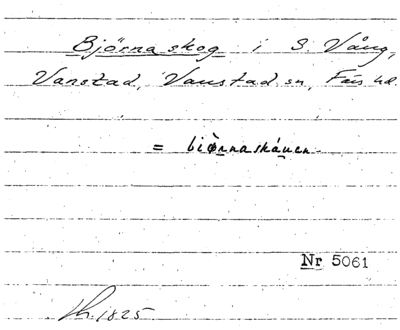 Björna skog i S. Vång,
Vanstad, Vanstad sn, Färs hd.
= biörnaskáuen
Nr 5061
1825.